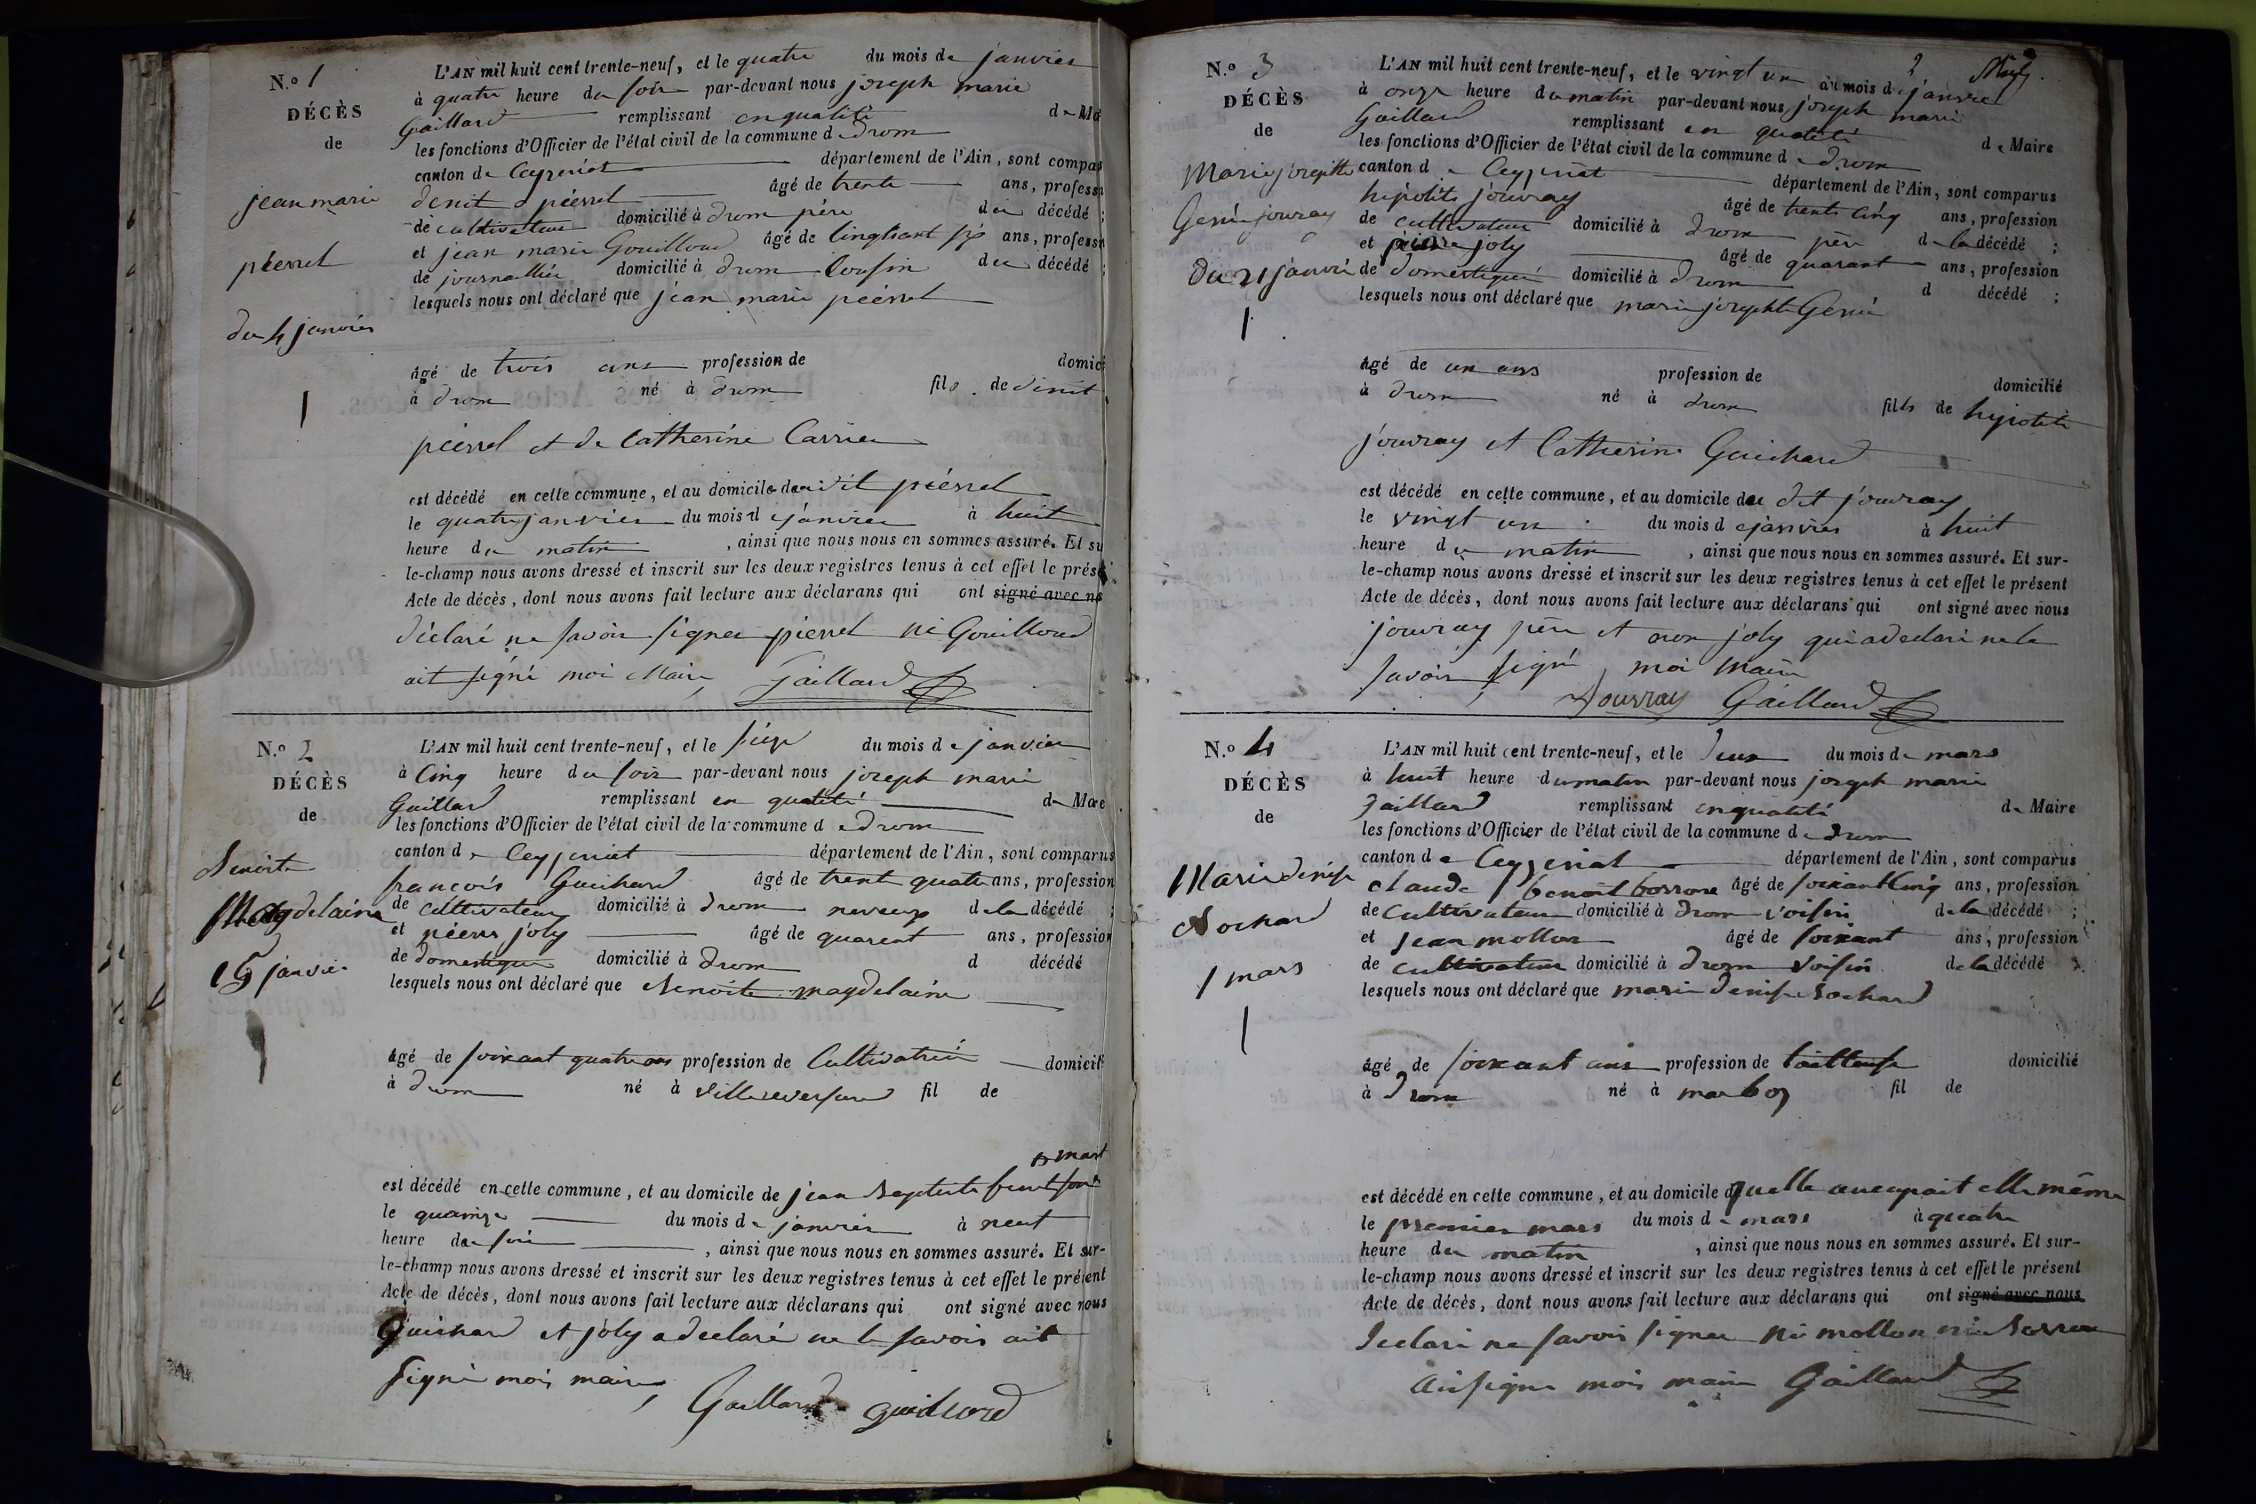 N.º 1
DÉCÈS
de
jean marie
piérrel
du 4 janvier
1
L'AN mil huit cent trente-neuf, et le quatre du mois de janvier
à quatre heure du soir par-devant nous joseph marie
Gaillard remplissant en qualité de Ma
les fonctions d'Officier de l'état civil de la commune de Drom
canton de Ceyzeriat département de l'Ain, sont compar
denit piérrel âgé de trente ans, professi
de cultivateur domicilié à Drom père du décédé ;
et jean marie Gouilloud âgé de ans, professi
de journallier domicilié à Drom Cousin du décédé ;
lesquels nous ont déclaré que jean marie piérrel
âgé de trois ans profession de domici
à Drom né à Drom fils de denit
piérrel et de Catherine Carrier
est décédé en cette commune, et au domicile du dit piérrel
le quatre janvier du mois d janvier à huit
heure du matin , ainsi que nous nous en sommes assuré. Et su
le-champ nous avons dressé et inscrit sur les deux registres tenus à cet effet le prése
Acte de décès, dont nous avons fait lecture aux déclarans qui ont signé avec no
déclaré ne savoir signer pierrel ni Gouilloud
ait signé moi Maire Gaillard
N.º 2
DÉCÈS
de
Benoite
Magdelaine
15 janvier
L'AN mil huit cent trente-neuf, et le seize du mois de janvier
à Cinq heure du soir par-devant nous joseph marie
Gaillard remplissant en qualité de Mare
les fonctions d'Officier de l'état civil de la commune de Drom
canton de Ceyzeriat département de l'Ain, sont comparus
francois Guichard âgé de trente quatre ans, profession
de cultivateur domicilié à Drom neveux de la décédé ;
et pierre joly âgé de quarent ans, profession
de domestique domicilié à Drom d décédé
lesquels nous ont déclaré que Benoite magdelaine
âgé de soixant quatre ans profession de Cultivatrice domicili
à Drom né à villereversure fil de
mari
est décédé en cette commune, et au domicile de jean Baptiste son
le quainze du mois de janvier à neuf
heure du soir , ainsi que nous nous en sommes assuré. Et sur-
le-champ nous avons dressé et inscrit sur les deux registres tenus à cet effet le présent
Acte de décès, dont nous avons fait lecture aux déclarans qui ont signé avec nous
Guichard et joly a declaré ne le savoir ait
signé mois maire Gaillard guichard
N.º 3
DÉCÈS
de
Marie josephte
Genié jouvray
du 21 janvié
1
2
L'AN mil huit cent trente-neuf, et le vingt un du mois de janvier
à onze heure du matin par-devant nous joseph marie
Gaillard remplissant en qualité de Maire
les fonctions d'Officier de l'état civil de la commune de Drom
canton de Ceyzeriat département de l'Ain, sont comparus
hipolite jouvray âgé de trente cinq ans, profession
de cultivateur domicilié à Drom père de la décédé ;
et pierre joly âgé de quarant ans, profession
de domestique domicilié à Drom d décédé ;
lesquels nous ont déclaré que marie josephte Genié
âgé de un ans profession de domicilié
à Drom né à Drom fille de hipolite
jouvray et Catherine Guichard
est décédé en cette commune, et au domicile du dit jouvray
le vingt un du mois de janvier à huit
heure du matin , ainsi que nous nous en sommes assuré. Et sur-
le-champ nous avons dressé et inscrit sur les deux registres tenus à cet effet le présent
Acte de décès, dont nous avons fait lecture aux déclarans qui ont signé avec nous
jouvray père et non joly qui a declaré ne le
savoir signé moi Maire
Jouvray Gaillard
N.º 4
DÉCÈS
de
Marie denise
Bochard
1 mars
1
L'AN mil huit cent trente-neuf, et le deux du mois de mars
à huit heure du matin par-devant nous joseph marie
Gaillard remplissant en qualité de Maire
les fonctions d'Officier de l'état civil de la commune de Drom
canton de Ceyzeriat département de l'Ain, sont comparus
claude benoit borron âgé de soixant Cinq ans, profession
de Cultivateur domicilié à Drom voisin de la décédé ;
et jean mollon âgé de soixant ans, profession
de cultivateur domicilié à Drom voisin de la décédé ;
lesquels nous ont déclaré que marie denise Bochard
âgé de soixant ans profession de tailleuse domicilié
à Drom né à marboz fil de
est décédé en cette commune, et au domicile quelle aucupait elle même
le premier mars du mois de mars à quatre
heure du matin , ainsi que nous nous en sommes assuré. Et sur-
le-champ nous avons dressé et inscrit sur les deux registres tenus à cet effet le présent
Acte de décès, dont nous avons fait lecture aux déclarans qui ont signé avec nous
declaré ne savoir signer ni mollon ni Borron
signé mois maire Gaillard